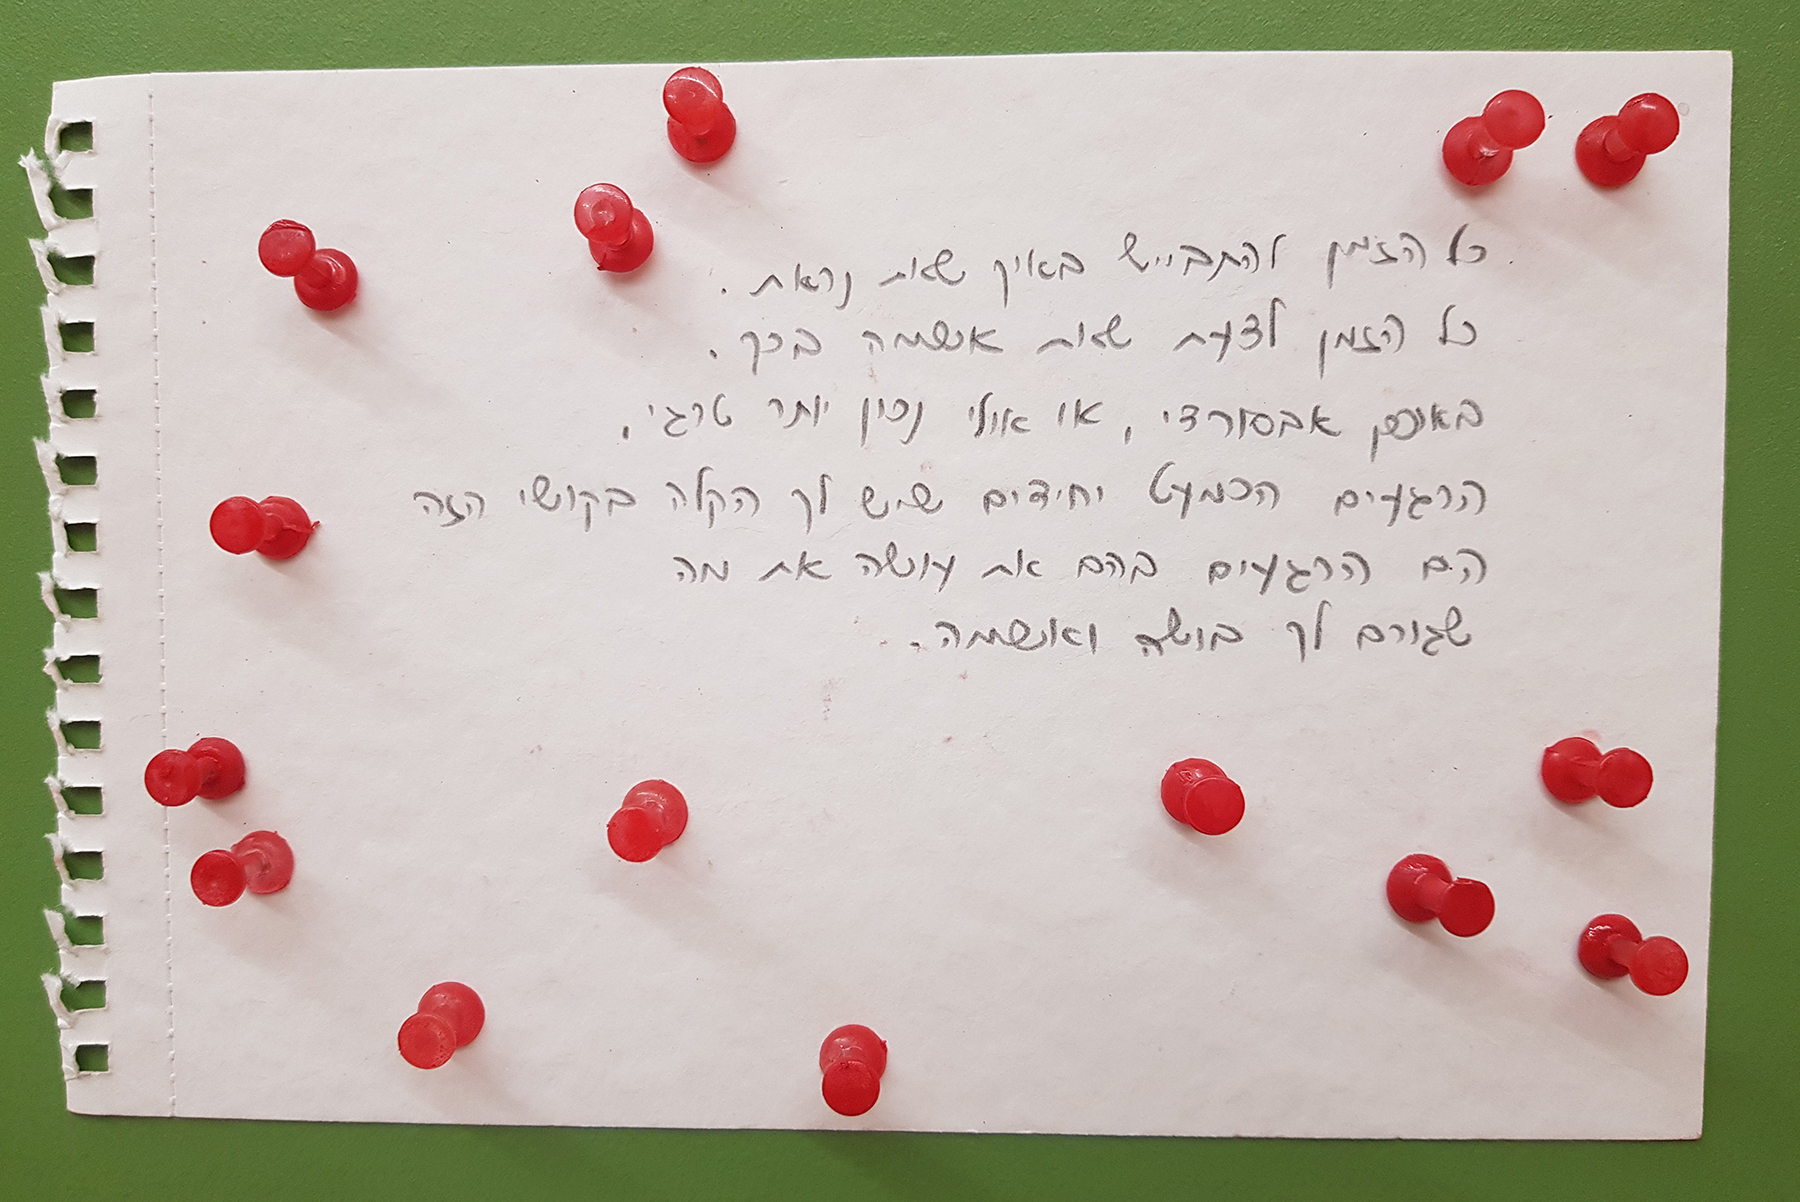 כל הזמן להתבייש באיך שאת נראת.
כל הזמן לדעת שאת אשמה בכך.
באופן אבסורדי, או אולי נכון יותר טרגי,
הרגעים הכמעט יחידים שיש לך הקלה בקושי הזה
הם הרגעים בהם את עושה את מה
שגורם לך בושה ואשמה.